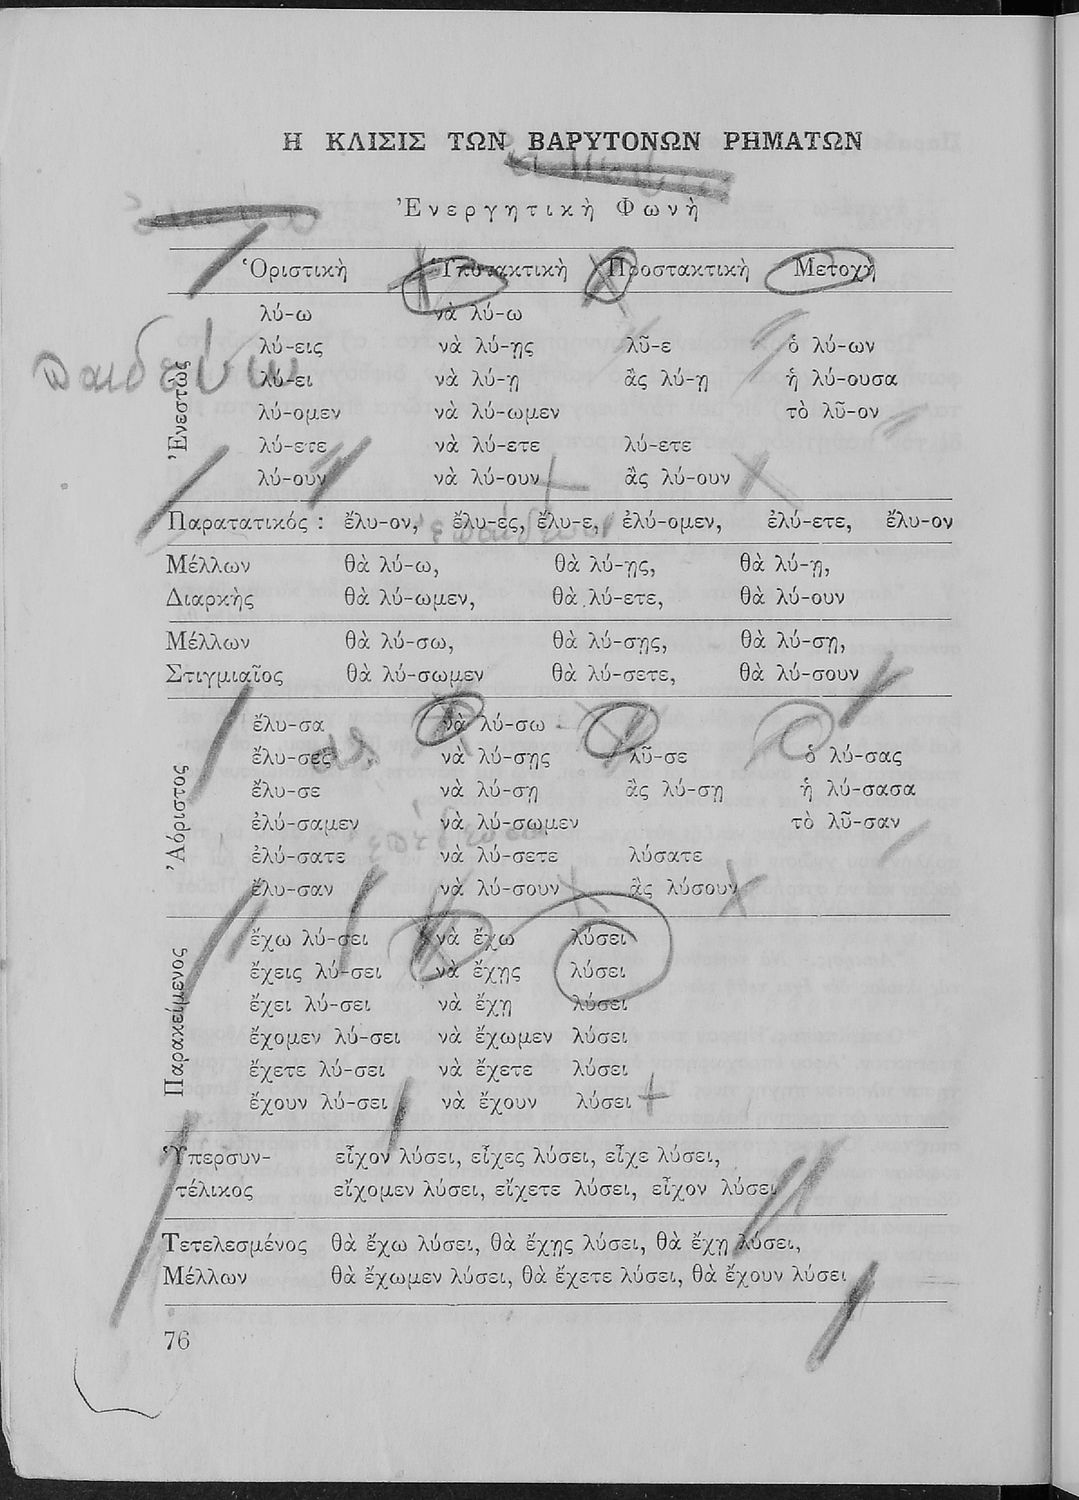 Η ΚΛΙΣΙΣ ΤΩΝ ΒΑΡΥΤΟΝΩΝ ΡΗΜΑΤΩΝ
Ἐνεργητικὴ Φωνὴ
Ὁριστικὴ Ὑποτακτικὴ Προστακτικὴ Μετοχὴ
Ἐνεστὼς
λύ-ω νὰ λύ-ω
λύ-εις νὰ λύ-ῃς λῦ-ε ὁ λύ-ων
λύ-ει νὰ λύ-ῃ ἂς λύ-ῃ ἡ λύ-ουσα
λύ-ομεν νὰ λύ-ωμεν τὸ λῦ-ον
λύ-ετε νὰ λύ-ετε λύ-ετε
λύ-ουν νὰ λύ-ουν ἂς λύ-ουν
παιδεύω
Παρατατικός : ἔλυ-ον, ἔλυ-ες, ἔλυ-ε, ἐλύ-ομεν, ἐλύ-ετε, ἔλυ-ον
Μέλλων θὰ λύ-ω, θὰ λύ-ῃς, θὰ λύ-ῃ,
Διαρκὴς θὰ λύ-ωμεν, θὰ λύ-ετε, θὰ λύ-ουν
Μέλλων θὰ λύ-σω, θὰ λύ-σῃς, θὰ λύ-σῃ,
Στιγμιαῖος θὰ λύ-σωμεν θὰ λύ-σετε, θὰ λύ-σουν
Ἀόριστος
ἔλυ-σα νὰ λύ-σω
ἔλυ-σες νὰ λύ-σῃς λῦ-σε ὁ λύ-σας
ἔλυ-σε νὰ λύ-σῃ ἂς λύ-σῃ ἡ λύ-σασα
ἐλύ-σαμεν νὰ λύ-σωμεν τὸ λῦ-σαν
ἐλύ-σατε νὰ λύ-σετε λύσατε
ἔλυ-σαν νὰ λύ-σουν ἂς λύσουν
Παρακείμενος
ἔχω λύ-σει νὰ ἔχω λύσει
ἔχεις λύ-σει νὰ ἔχῃς λύσει
ἔχει λύ-σει νὰ ἔχῃ λύσει
ἔχομεν λύ-σει νὰ ἔχωμεν λύσει
ἔχετε λύ-σει νὰ ἔχετε λύσει
ἔχουν λύ-σει νὰ ἔχουν λύσει
Ὑπερσυν- εἶχον λύσει, εἶχες λύσει, εἶχε λύσει,
τέλικος εἴχομεν λύσει, εἴχετε λύσει, εἶχον λύσει
Τετελεσμένος θὰ ἔχω λύσει, θὰ ἔχῃς λύσει, θὰ ἔχῃ λύσει,
Μέλλων θὰ ἔχωμεν λύσει, θὰ ἔχετε λύσει, θὰ ἔχουν λύσει
76